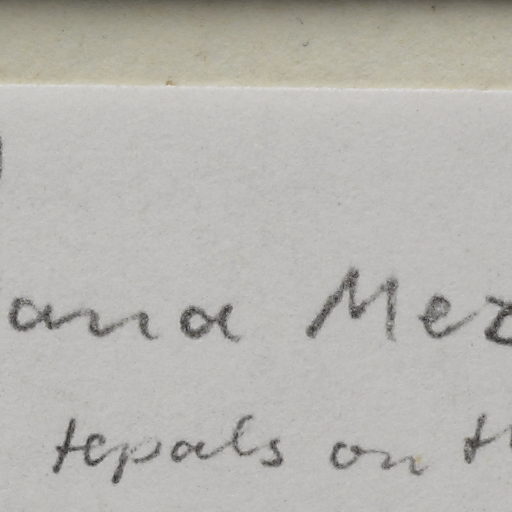 ana Mez
tepals on th